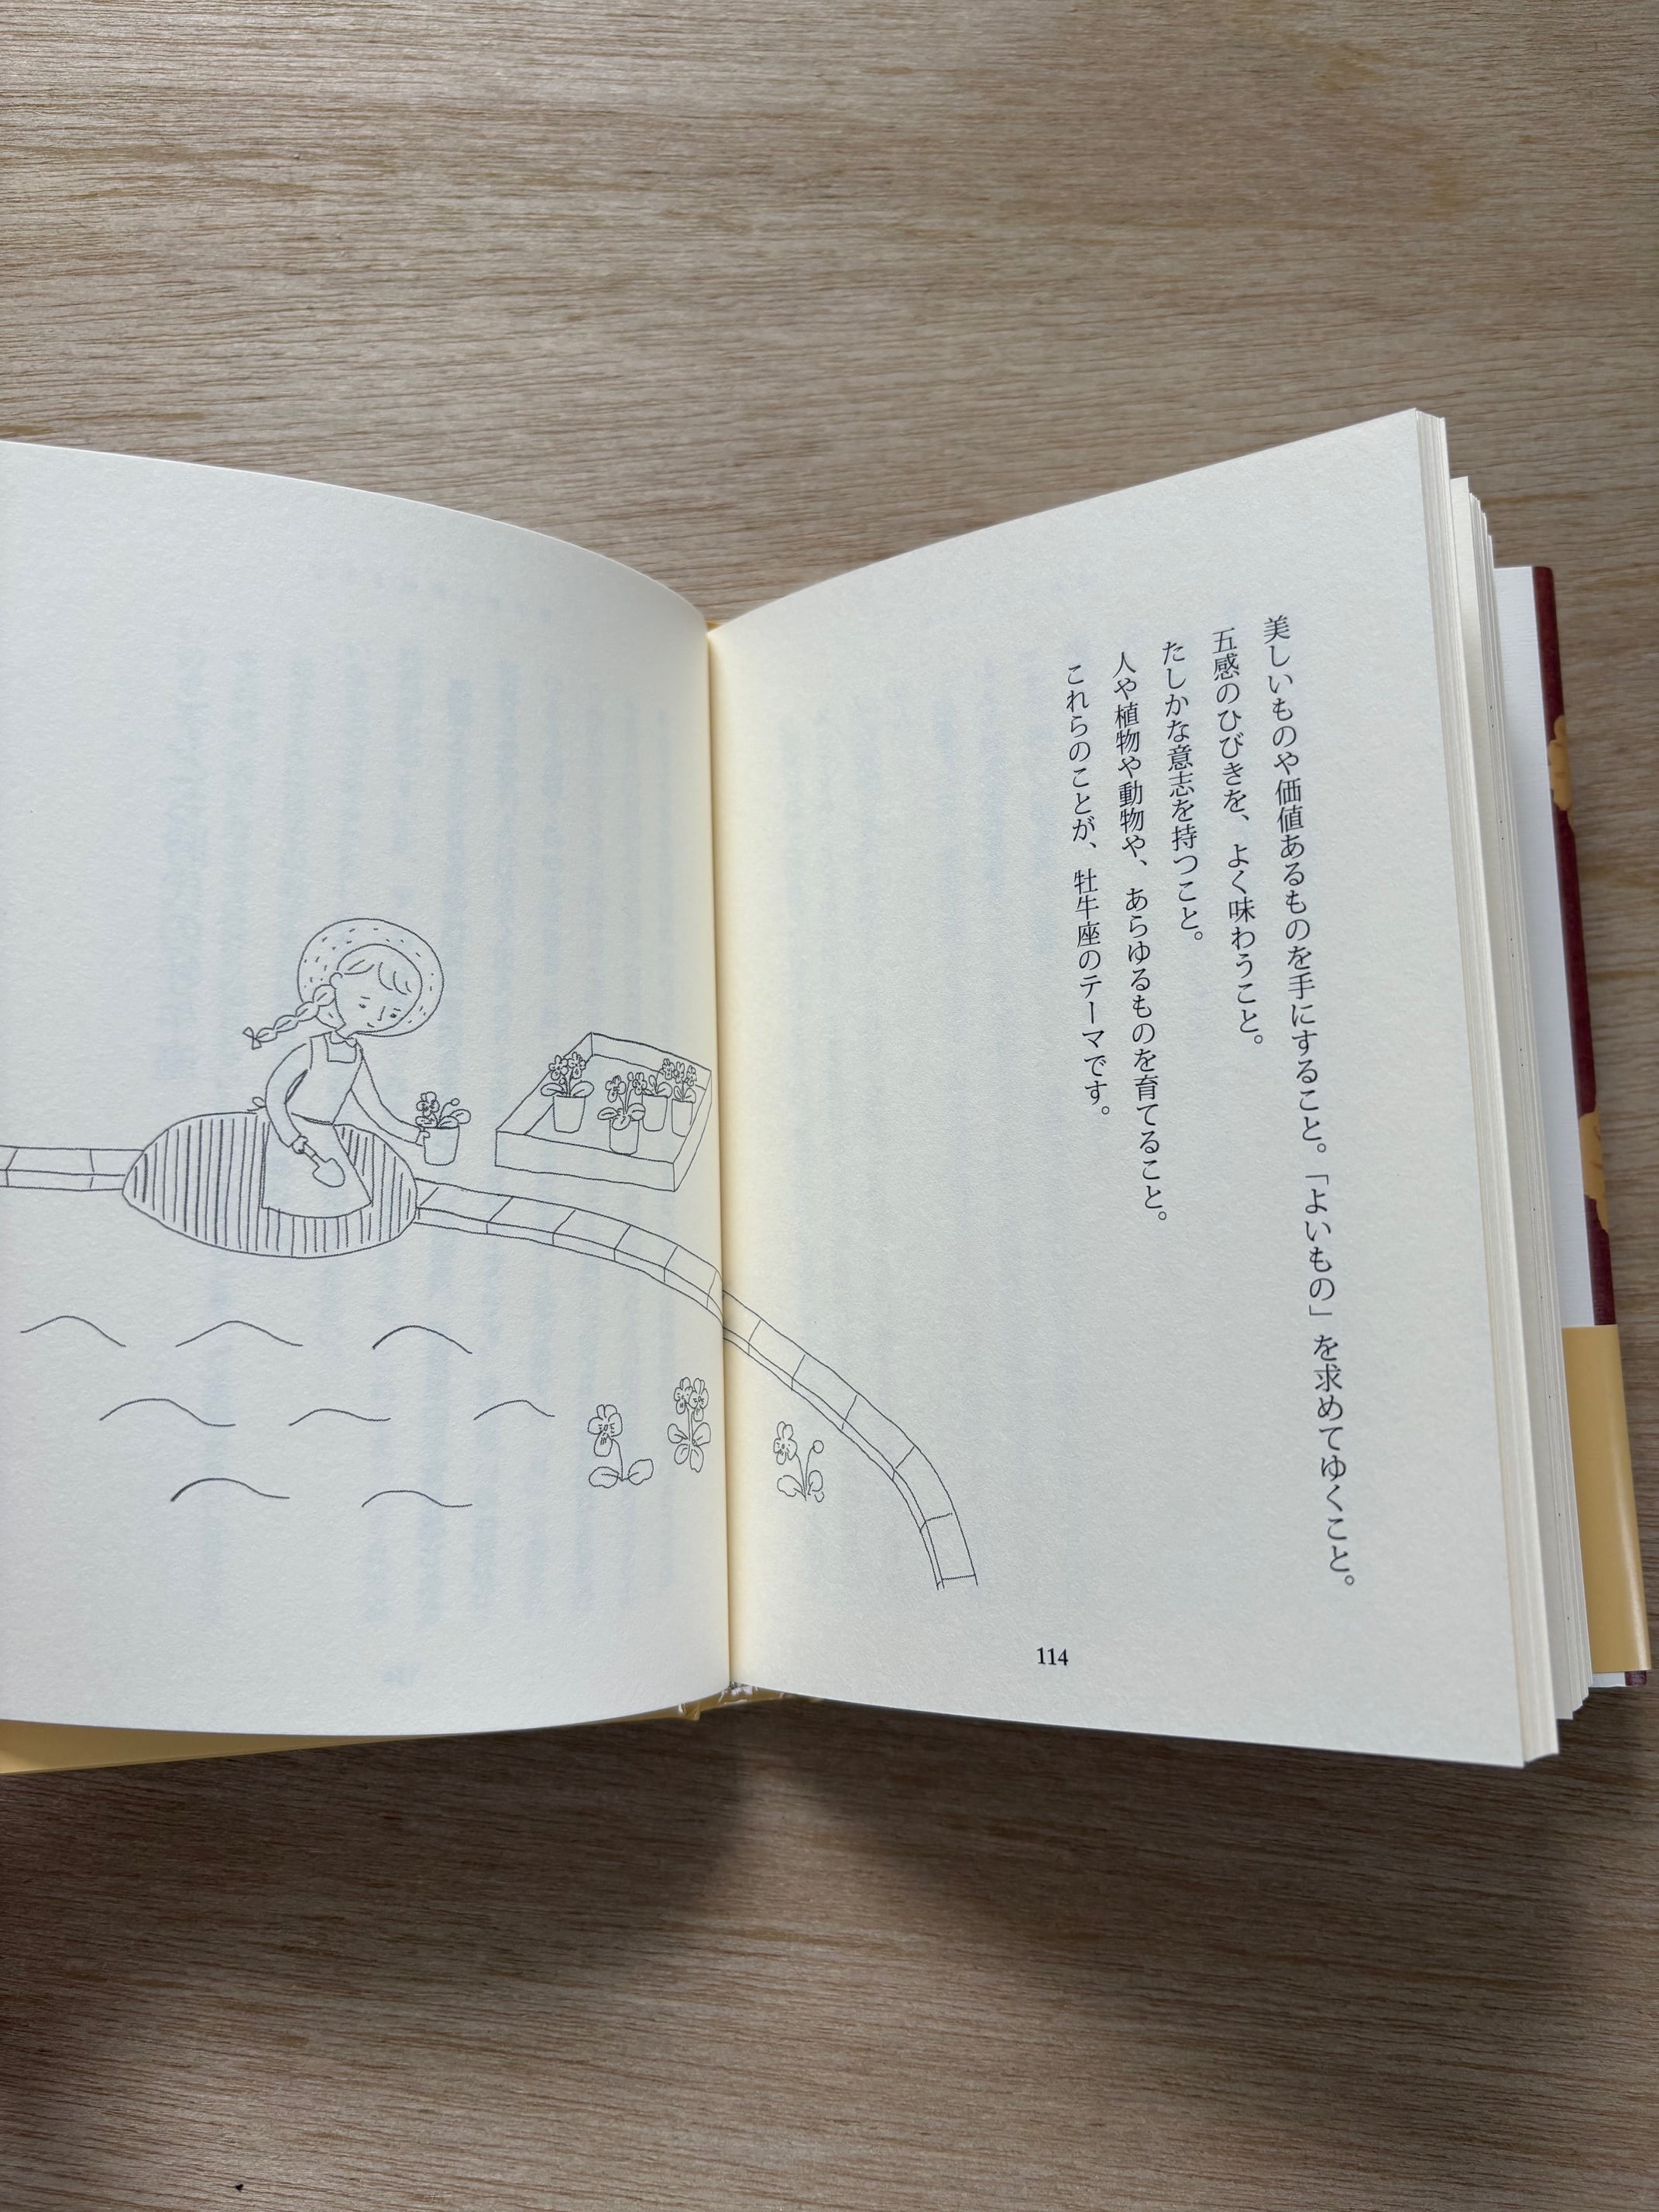 美しいものや価値あるものを手にすること。「よいもの」を求めてゆくこと。
五感のひびきを、よく味わうこと。
たしかな意志を持つこと。
人や植物や動物や、あらゆるものを育てること。
これらのことが、牡牛座のテーマです。
114